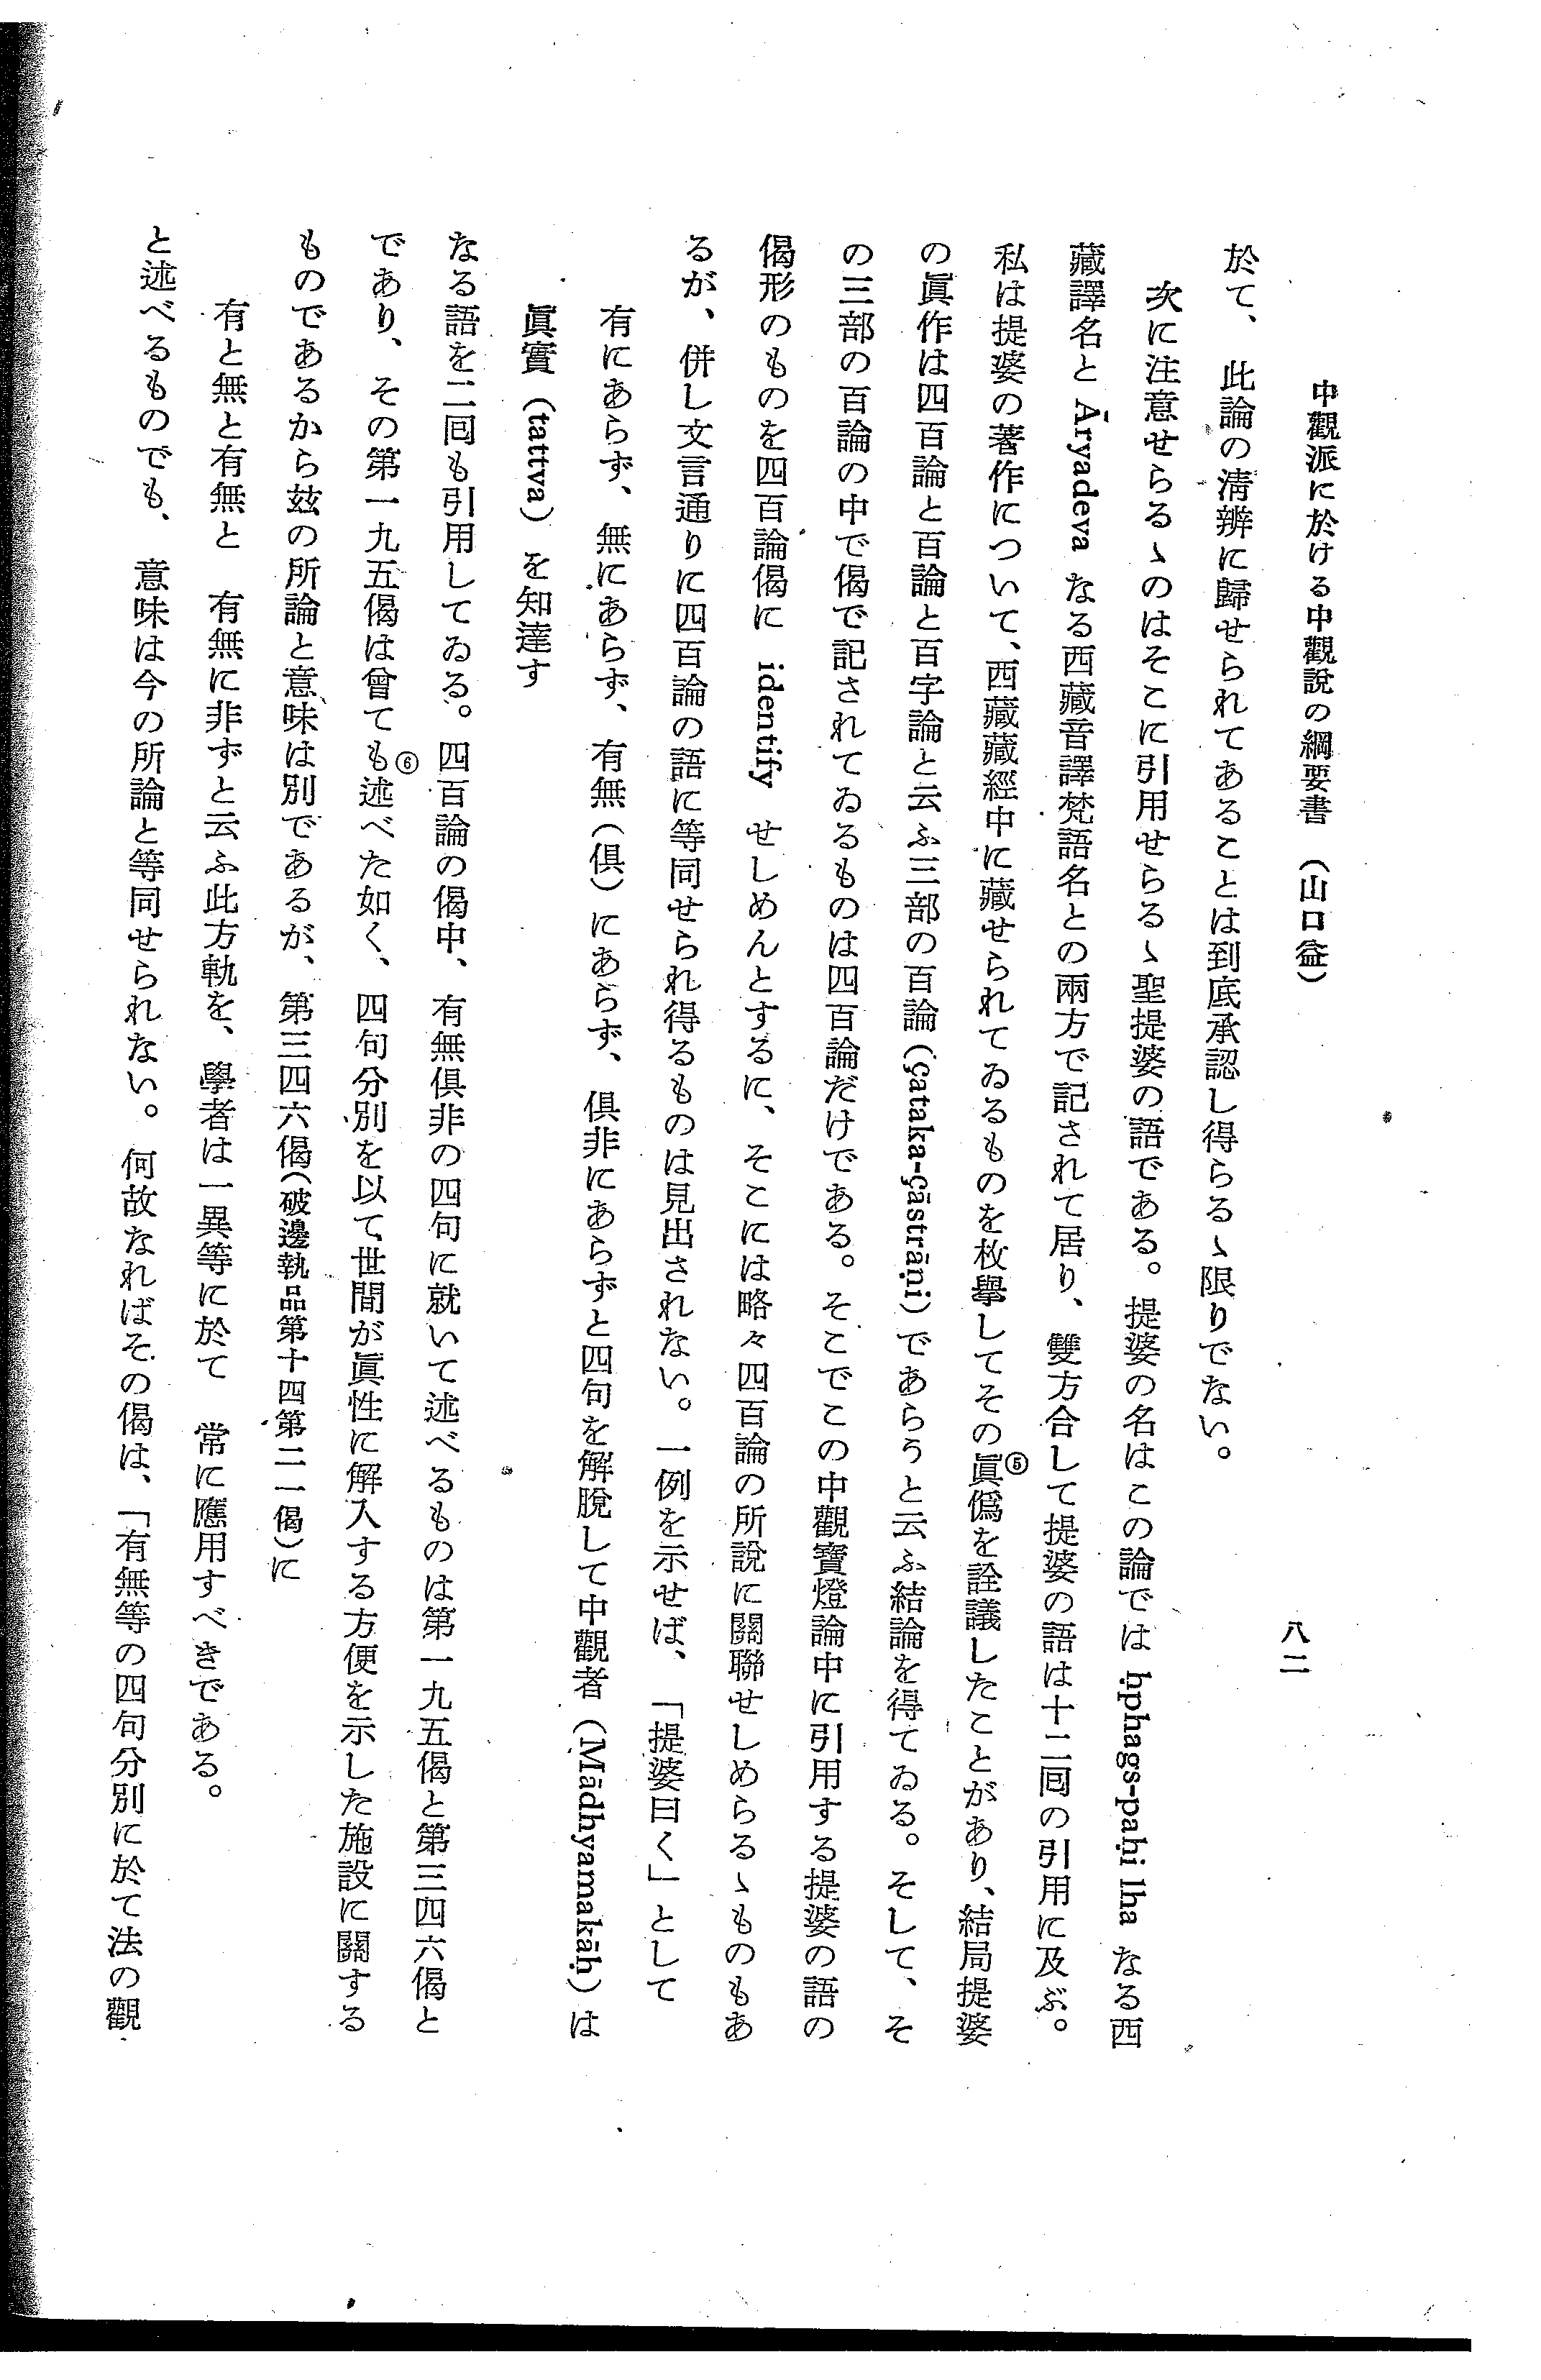 中觀派に於ける中觀說の綱要書　（山口益）
八二
於て、此論の淸辨に歸せられてあることは到底承認し得らるゝ限りでない。
次に注意せらるゝのはそこに引用せらるゝ聖提婆の語である。提婆の名はこの論では ḥphags-paḥi lha なる西
藏譯名と Āryadeva なる西藏音譯梵語名との兩方で記されて居り、雙方合して提婆の語は十二囘の引用に及ぶ。
私は提婆の著作について、西藏藏經中に藏せられてゐるものを枚擧してその眞僞⑤を詮議したことがあり、結局提婆
の眞作は四百論と百論と百字論と云ふ三部の百論（çataka-çāstrāṇi）であらうと云ふ結論を得てゐる。そして、そ
の三部の百論の中で偈で記されてゐるものは四百論だけである。そこでこの中觀寶燈論中に引用する提婆の語の
偈形のものを四百論偈に identify せしめんとするに、そこには略々四百論の所說に關聯せしめらるゝものもあ
るが、併し文言通りに四百論の語に等同せられ得るものは見出されない。一例を示せば、「提婆曰く」として
有にあらず、無にあらず、有無（俱）にあらず、俱非にあらずと四句を解脫して中觀者（Mādhyamakāḥ）は
眞實（tattva）を知達す
なる語を二囘も引用してゐる。四百論の偈中、有無俱非の四句に就いて述べるものは第一九五偈と第三四六偈と
であり、その第一九五偈は曾ても⑥述べた如く、四句分別を以て世間が眞性に解入する方便を示した施設に關する
ものであるから玆の所論と意味は別であるが、第三四六偈（破邊執品第十四第二一偈）に
有と無と有無と　有無に非ずと云ふ此方軌を、學者は一異等に於て　常に應用すべきである。
と述べるものでも、意味は今の所論と等同せられない。何故なればその偈は、「有無等の四句分別に於て法の觀